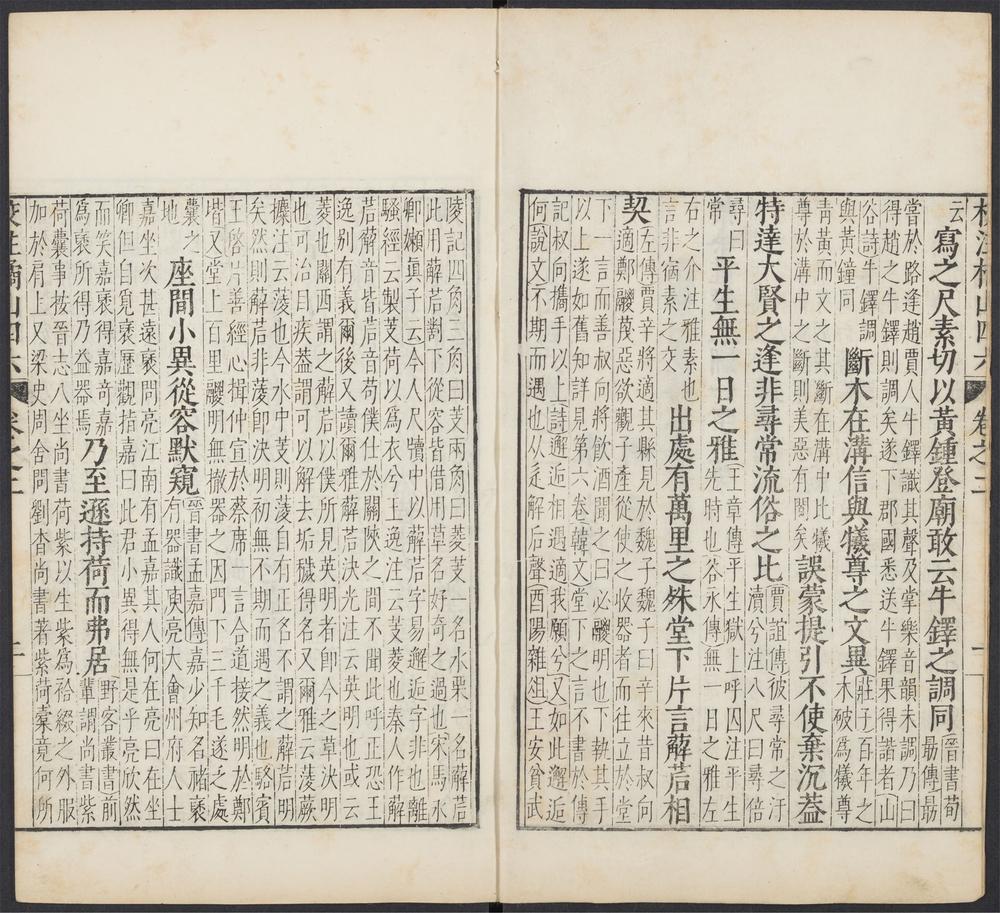 校注橘山四六 卷之二 一
云
寫之尺素切以黃鍾登廟敢云牛鐸之調同
晉書荀
勗傳勗
嘗於路逢趙賈人牛鐸識其聲及掌樂音韻未調乃曰
得趙之牛鐸則調矣遂下郡國悉送牛鐸果得諧者山
谷詩牛鐸調
與黃鐘同
斷木在溝信與犧尊之文異
莊子百年之
木破爲犧尊
青黃而文之其斷在溝中比犧
尊於溝中之斷則美惡有間矣
誤蒙提引不使棄沉蓋
特達大賢之逢非尋常流俗之比
賈誼傳彼尋常之汙
瀆兮注八尺曰尋倍
尋曰
常
平生無一日之雅
王章傳平生獄上呼囚注平生
先時也谷永傳無一日之雅左
右之介注雅素也
言非宿素之交
出處有萬里之殊堂下片言薢茩相
契
左傳賈辛將適其縣見於魏子魏子曰辛來昔叔向
適鄭鬷蔑惡欲觀子產從使之收器者而往立於堂
下一言而善叔向將飲酒聞之曰必鬷明也下執其手
以上遂如舊知詳見第六卷韓文堂下之言不書於傳
記叔向攜手以上詩邂逅相遇適我願兮又如此邂逅
何說文不期而遇也从辵解后聲酉陽雜俎王安貧武
陵記四角三角曰芰兩角曰菱芰一名水栗一名薢茩
此用薢茩對下從容皆借用草名好奇之過也宋馬永
卿嬾真子云今人尺牘中以薢茩字易邂逅字非也離
騷經云製芰荷以爲衣兮王逸注云芰菱也秦人作薢
茩薢音皆茩音苟僕仕於關陝之間不聞此呼正恐王
逸别有義爾後又讀爾雅薢茩決光注云英明也或云
菱也關西謂之薢茩以僕所見英明者卽今之草決明
也可治目疾葢謂可以解去垢穢得名又爾雅云菱蕨
攈注云菱也今水中芰則菱自有正名不謂之薢茩明
矣然則薢茩非菱卽決明明初無不期而遇之義也駱賓
王啓片善經心揖仲宣於蔡席一言合道接然明於鄭
堦又堂上百里鬷明無撤器之因門下三千毛遂乏處
囊之
地
座間小異從容默窺
晉書孟嘉傳嘉少知名禇裒
有器識庾亮大會州府人士
嘉坐次甚遠裒問亮江南有孟嘉其人何在亮曰在坐
卿但自覓裒歷觀指嘉曰此君小異得無是乎亮欣然
而笑嘉裒得嘉奇嘉
爲裒所得乃益器焉
乃至遜持荷而弗居
野客叢書前
輩謂尚書紫
荷囊事按晉志八坐尚書荷紫以生紫爲袷綴之外服
加於肩上又梁史周舍問劉杳尚書著紫荷橐竟何所